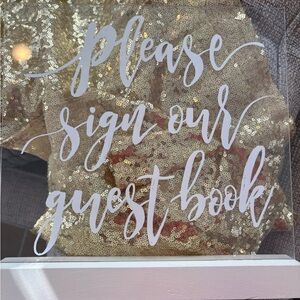 please
sign our
guest book